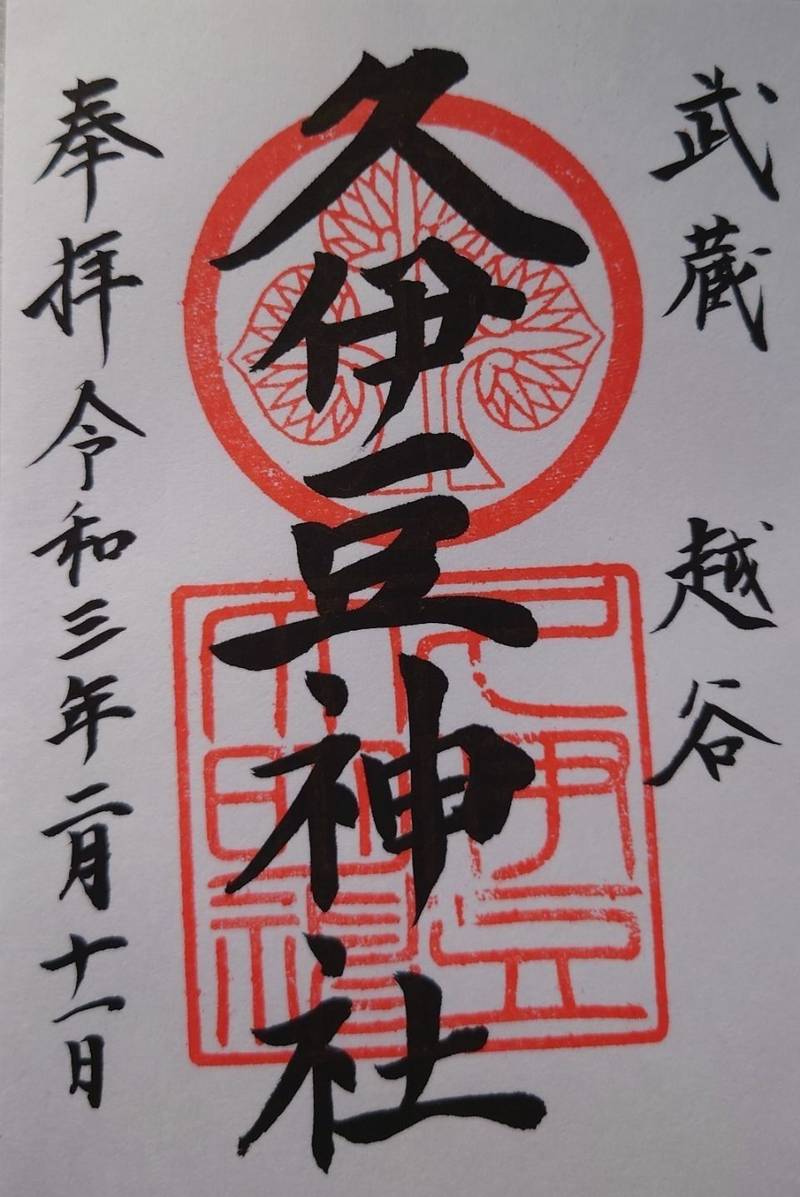 武蔵 越谷
久伊豆神社
奉拝 令和三年二月十一日